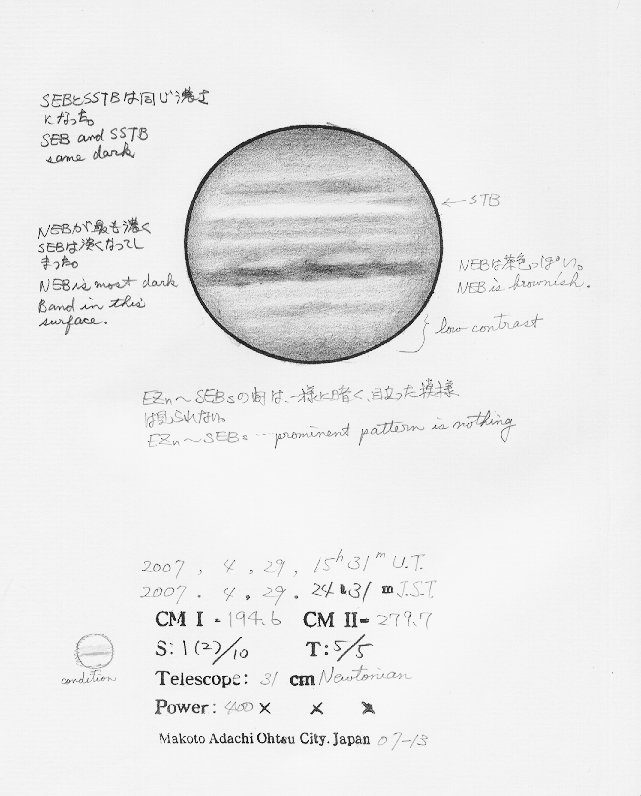 SEBとSSTBは同じ濃さ
になった。
SEB and SSTB
same dark
←STB
NEBが最も濃く
SEBは淡くなってし
まった。
NEB is most dark
Band in this
surface.
NEBは茶色っぽい。
NEB is brownish.
low contrast
EZn～SEBsの間は、一様に暗く、目立った模様
は見られない。
EZn～SEBs … prominent pattern is nothing
2007, 4, 29, 15h 31m U.T.
2007. 4. 29. 24h 31m J.S.T.
CM I - 194.6 CM II - 279.7
S: 1(2)/10 T: 5/5
condition
Telescope: 31 cm Newtonian
Power: 400 × × ×
Makoto Adachi Ohtsu City. Japan 07-13